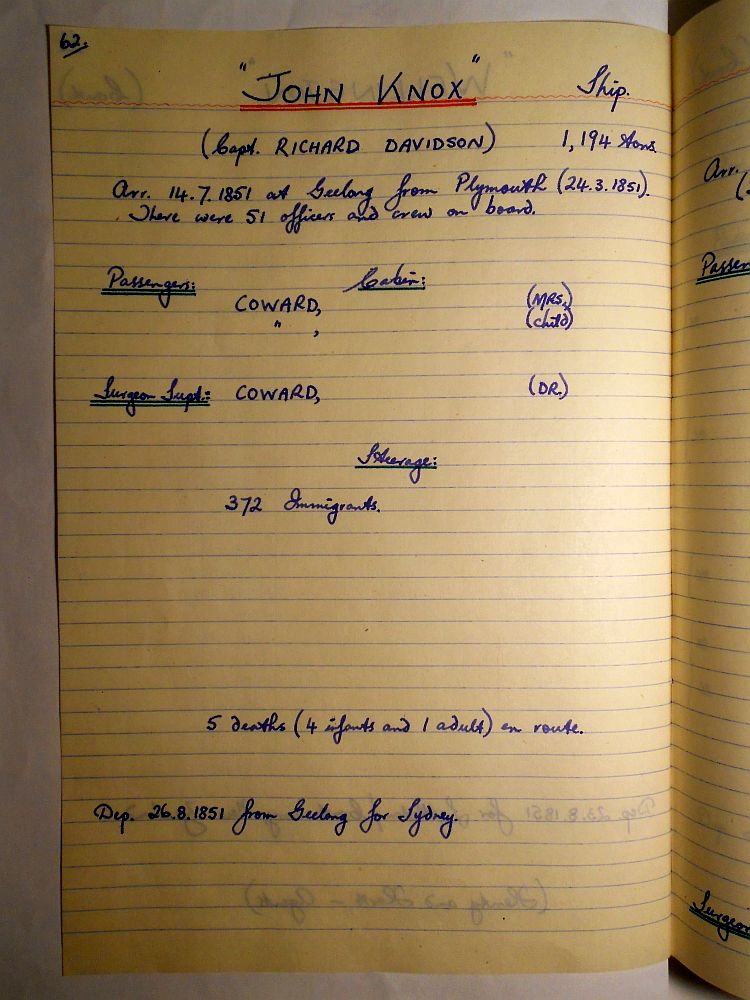 62.
"JOHN KNOX" Ship.
(Capt. RICHARD DAVIDSON) 1,194 tons
Arr. 14.7.1851 at Geelong from Plymouth (24.3.1851).
There were 51 officers and crew on board.
Passengers: Cabin:
COWARD, (MRS.)
" , (child)
Surgeon Supt.: COWARD, (DR.)
Steerage:
372 Immigrants.
5 deaths (4 infants and 1 adult) en route.
Dep. 26.8.1851 from Geelong for Sydney.
Arr.
Passen
Surgeon